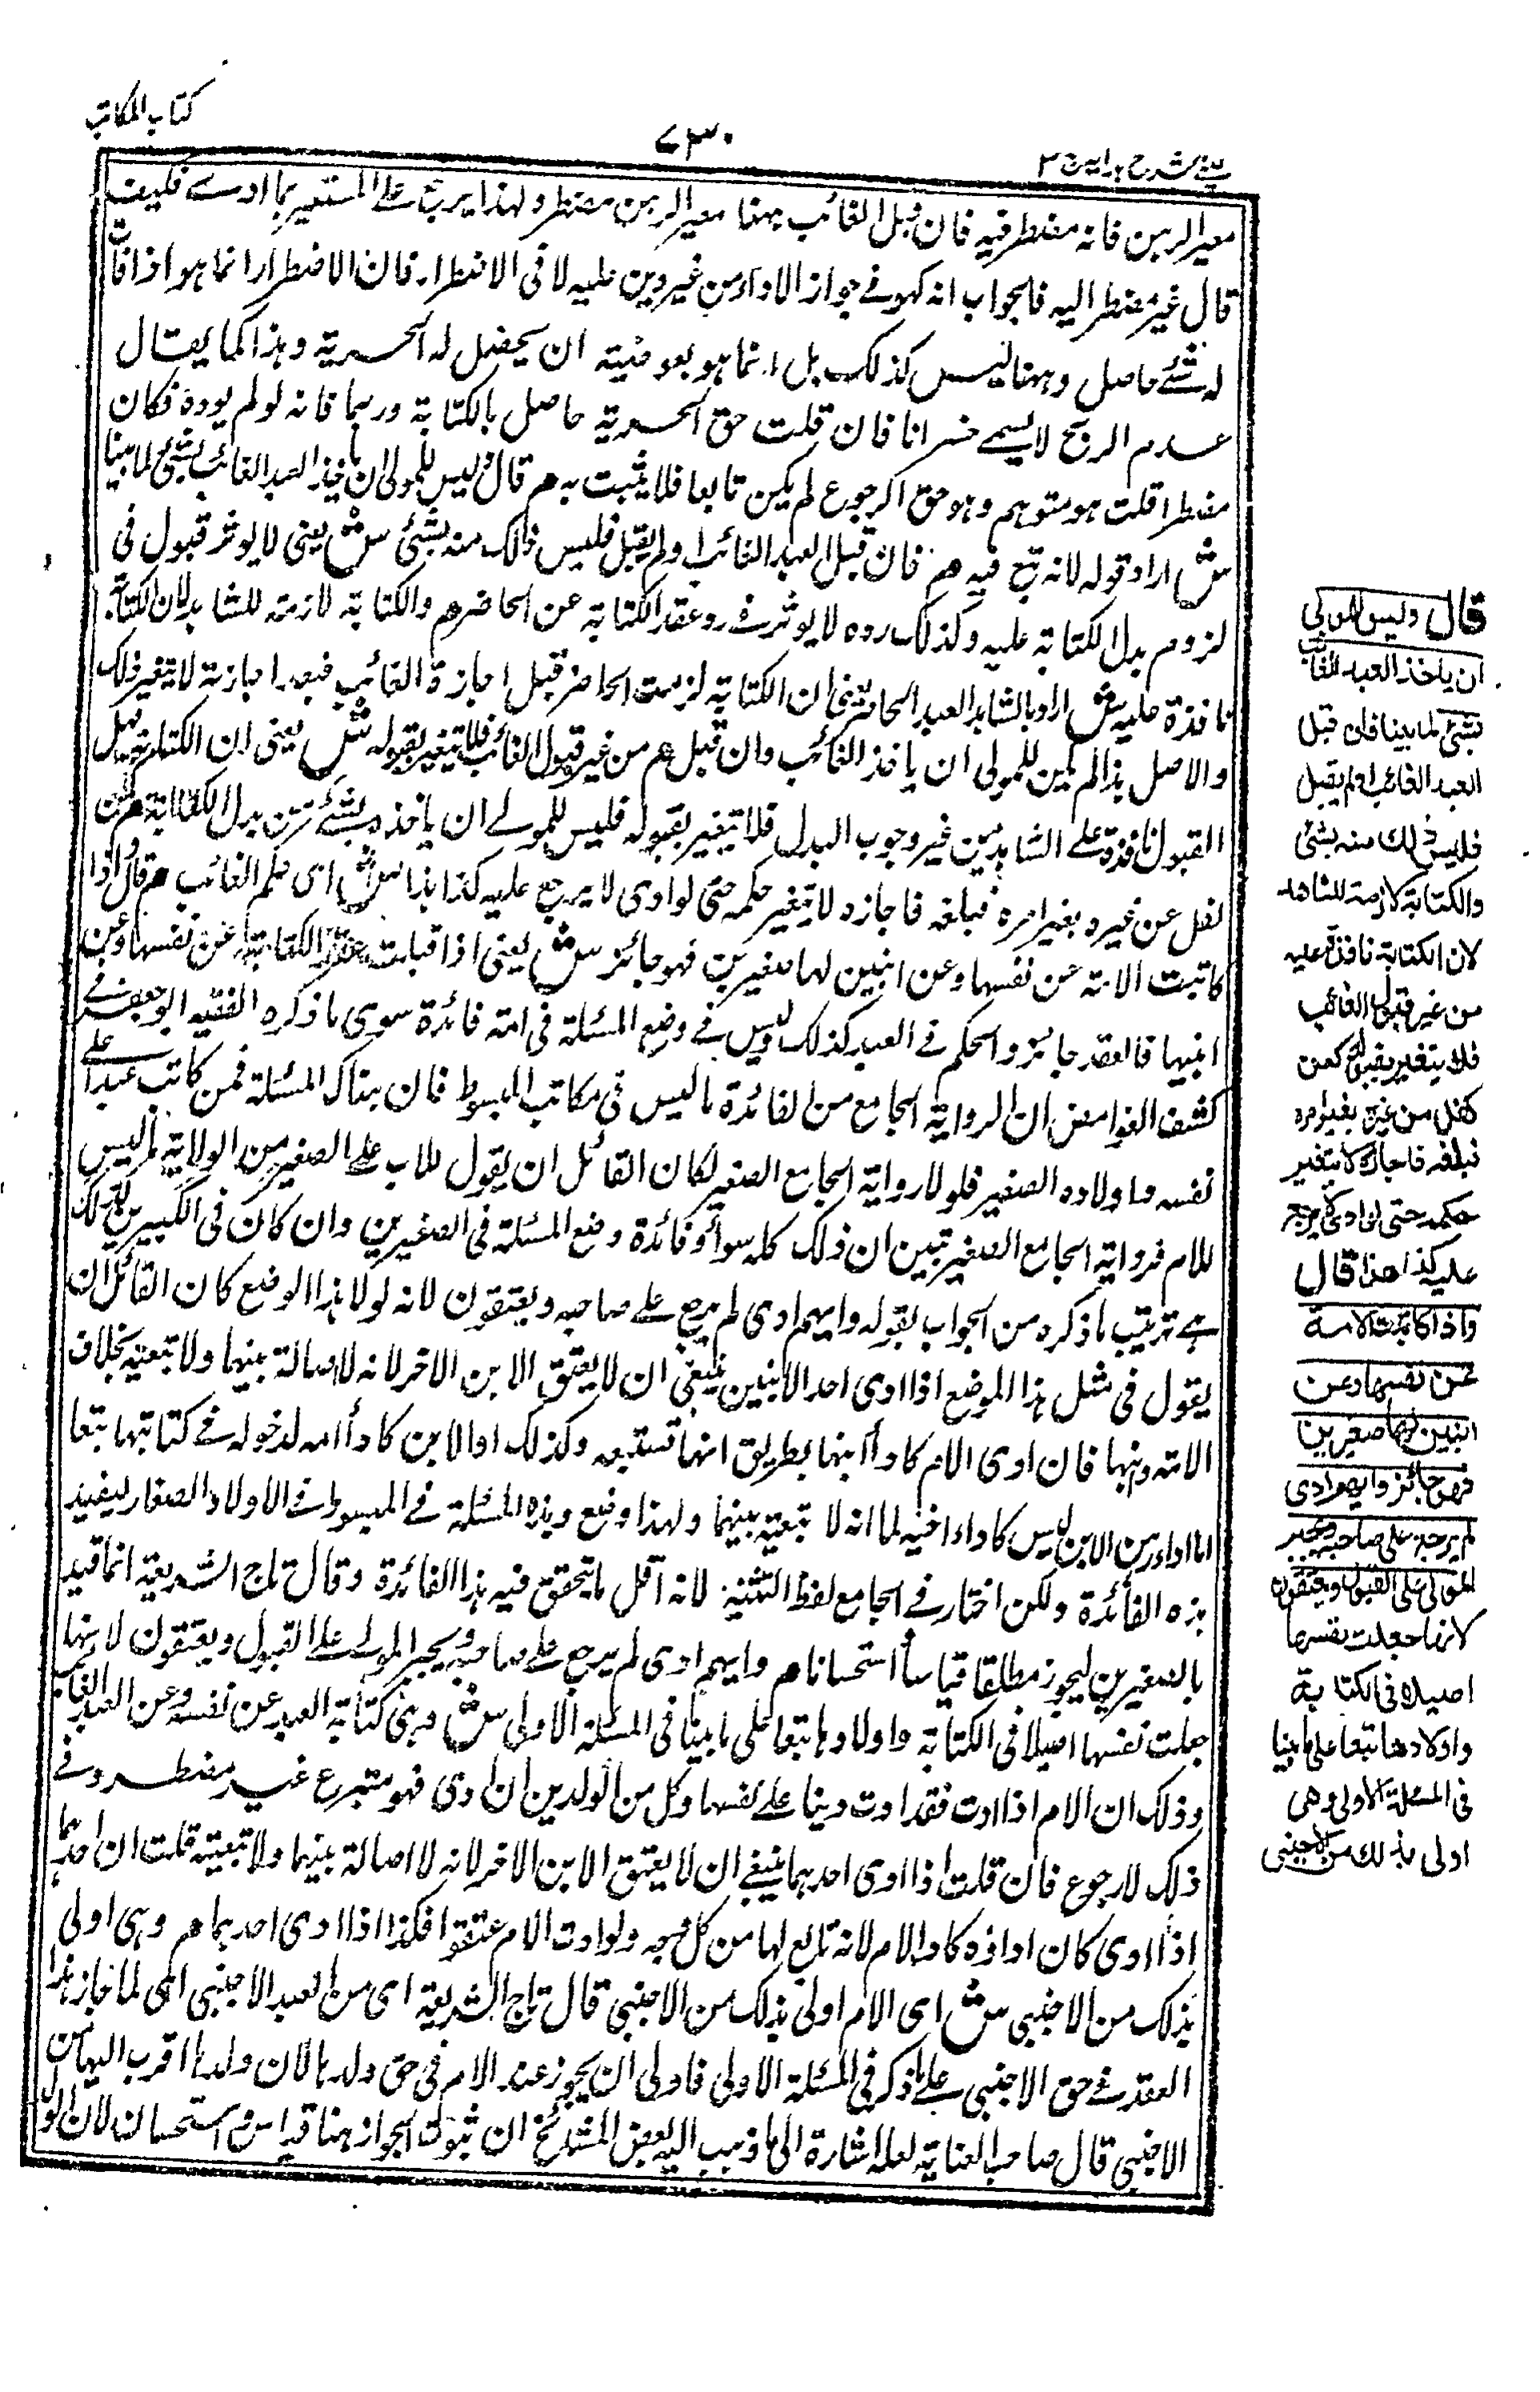 كتاب المكاتب
٧٣٠
عيني شرح هداية ج ٣
معير الرهن فانه مضطر فيه فان قبل الغائب ههنا معير الرهن مضطر ولهذا يرجع على المستعير بما ادى فكيف
قال غير مضطر اليه فالجواب انه كهو في جواز الاداء من غير دين عليه لا في الاضطرار فان الاضطرار انما هو اذا فات
له شئ حاصل وههنا ليس كذلك بل انما هو بعرضية ان يحصل له الحرية وهذا كما يقال
عدم الربح لا يسمى خسرانا فان قلت حق الحرية حاصل بالكتابة وربما فاته لو لم يوده فكان
مضطرا قلت هو متوهم وهو حق الرجوع لم يكن تابعا فلا يثبت به هم قال وليس للمولى ان ياخذ العبد الغائب بشئ لما بينا
ش اراد قوله لانه تبع فيه هم فان قبل العبد الغائب او لم يقبل فليس ذلك منه بشئ ش يعنى لا يوثر قبوله فى
لزوم بدل الكتابة عليه وكذلك رده لا يوثر في رد عقد الكتابة عن الحاضر هم والكتابة لازمة للشاهد لان الكتابة
نافذة عليه ش اراد بالشاهد العبد الحاضر يعنى ان الكتابة لزمت الحاضر قبل اجازة الغائب فبعد اجازته لا يتغير ذلك
والاصل هذا لم يكن للمولى ان ياخذ الغائب وان قبل هم من غير قبول الغائب فلا يتغير بقبوله ش يعنى ان الكتابة قبل
القبول نافذة على الشاهد من غير وجوب البدل فلا يتغير بقبوله فليس للمولى ان ياخذه بشئ من بدل الكتابة هم كمن
كفل عن غيره بغير امره فبلغه فاجازه لا يتغير حكمه حتى لو ادى لا يرجع عليه كذا هذا ش اى حكم الغائب هم قال واذا
كاتبت الامة عن نفسها وعن ابنين لها صغيرين فهو جائز ش يعنى اذا قبلت عقد الكتابة عن نفسها وعن
ابنيها فالعقد جائز والحكم في العبد كذلك وليس في وضع المسئلة فى امة فائدة سوى ما ذكره الفقيه ابو جعفر في
كشف الغوامض ان الرواية الجامع من الفائدة ما ليس فى مكاتب المبسوط فان هناك المسئلة فمن كاتب عبدا على
نفسه واولاده الصغير فلولا رواية الجامع الصغير لكان القائل ان يقول للاب على الصغير من الولاية ما ليس
للام فرواية الجامع الصغير تبين ان ذلك كله سواء وفائدة وضع المسئلة فى الصغيرين وان كان فى الكبيرين كذلك
هي ترتيب ما ذكره من الجواب بقوله وايهم ادى لم يرجع على صاحبه ويعتقون لانه لولا هذا الوضع كان القائل ان
يقول فى مثل هذا الموضع اذا ادى احد الابنين ينبغى ان لا يعتق الابن الاخر لانه لا اصالة بينهما ولا تبعية بخلاف
الامة وابنها فان ادى الام كاداء ابنها بطريق انها تستتبعه وكذلك اداء الابن كاداء امه لدخوله في كتابتها تبعا
اما اداء من الابن ليس كاداء اخيه لما انه لا تبعية بينهما ولهذا وضع هذه المسئلة في المبسوط في الاولاد الصغار ليفيد
هذه الفائدة ولكن اختار في الجامع لفظ التثنية لانه اقل ما يتحقق فيه هذا الفائدة وقال تاج الشريعة انما قيد
بالصغيرين ليجوز مطلقا قياسا استحسانا هم وايهم ادى لم يرجع على صاحبه ويجبر المولى على القبول ويعتقون لانها
جعلت نفسها اصيلا فى الكتابة واولادها تبعا على ما بينا فى المسئلة الاولى ش وهى كتابة العبد عن نفسه وعن العبد الغائب
وذلك ان الام اذا ادت فقد ادت دينا على نفسها وكل من الولدين ان ادى فهو متبرع غير مضطر وفي
ذلك لا رجوع فان قلت اذا ادى احدهما ينبغي ان لا يعتق الابن الاخر لانه لا اصالة بينهما ولا تبعية قلت ان احدهما
اذا ادى كان اداؤه كاداء الام لانه تابع لها من كل وجه ولو ادت الام عتقوا فكذا اذا ادى احدهما هم وهى اولى
بذلك من الاجنبى ش اى الام اولى بذلك من الاجنبى قال تاج الشريعة اى من العبد الاجنبى اى لما جاز هذا
العقد في حق الاجنبى على ما ذكر فى المسئلة الاولى فاولى ان يجوز عقد الام فى حق ولدها لان ولدها اقرب اليها من
الاجنبى قال صاحب العناية لعله اشارة الى ما ذهب اليه بعض المشائخ ان ثبوت الجواز هنا قياس واستحسان لان الولد
قال وليس للمولى
ان ياخذ العبد الغائب
بشئ لما بينا فان قبل
العبد الغائب او لم يقبل
فليس ذلك منه بشئ
والكتابة لازمة للشاهد
لان الكتابة نافذة عليه
من غير قبول الغائب
فلا يتغير بقبوله كمن
كفل من غيره بغير امره
فبلغه فاجازه لا يتغير
حكمه حتى لو ادى لا يرجع
عليه كذا هذا قال
واذا كاتبت الامة
عن نفسها وعن
ابنين لها صغيرين
فهو جائز وايهم ادى
لم يرجع على صاحبه ويجبر
المولى على القبول ويعتقون
لانها جعلت نفسها
اصيلا فى الكتابة
واولادها تبعا على ما بينا
فى المسئلة الاولى وهى
اولى بذلك من الاجنبى